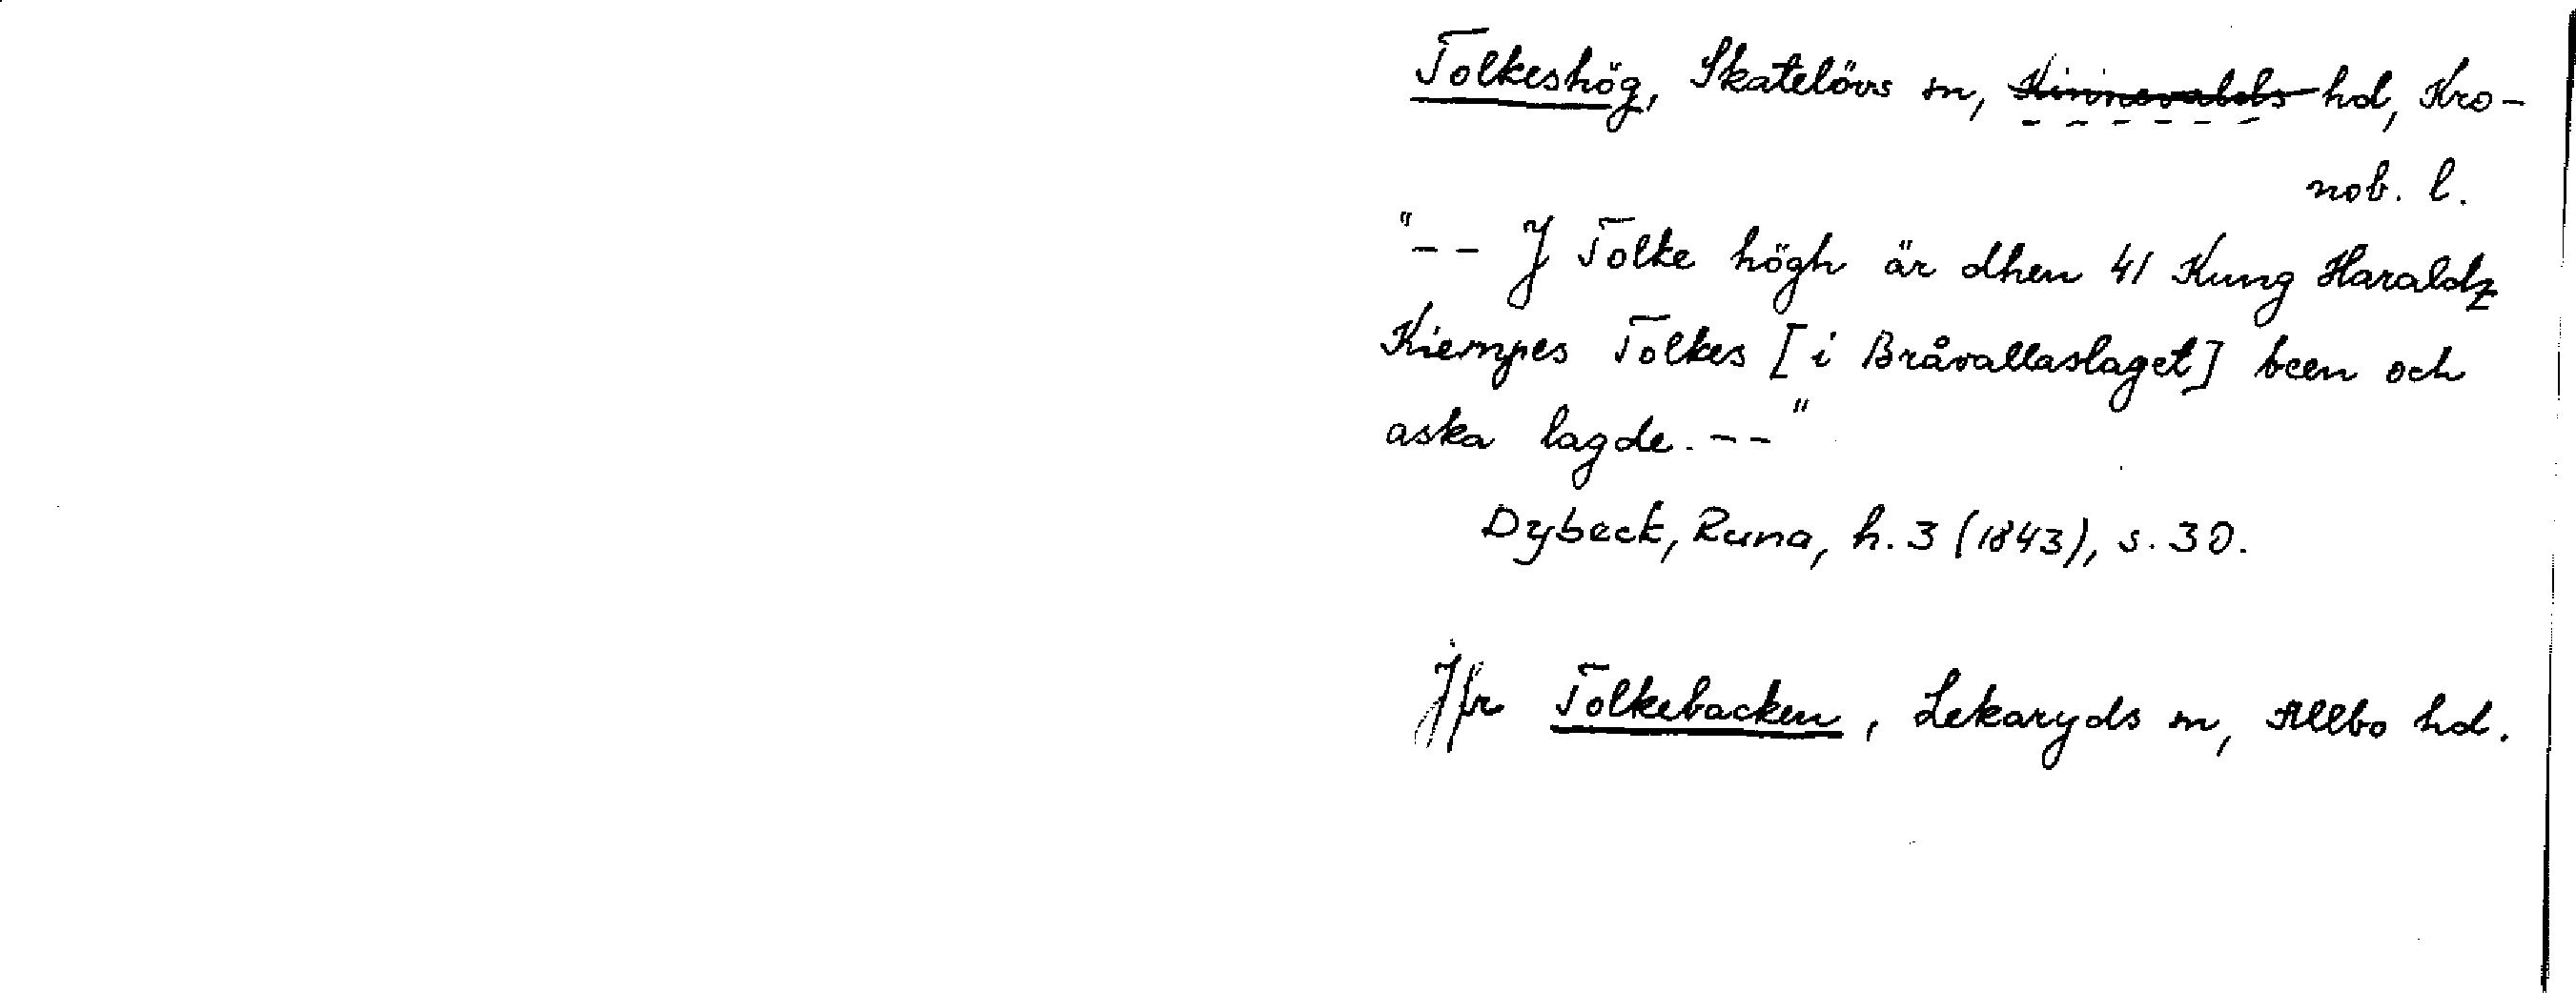 Tolkeshög, Skatelövs sn, Kinnevalds hd, Kro-
nob. l.
"-- J Tolke högh är dhen 41 Kung Haraldz
Kiempes Tolkes [i Bråvallaslaget] been och
aska lagde. --"
Dybeck, Runa, h. 3 (1843), s. 30.
Jfr Tolkebacken, Lekaryds sn, Allbo hd.